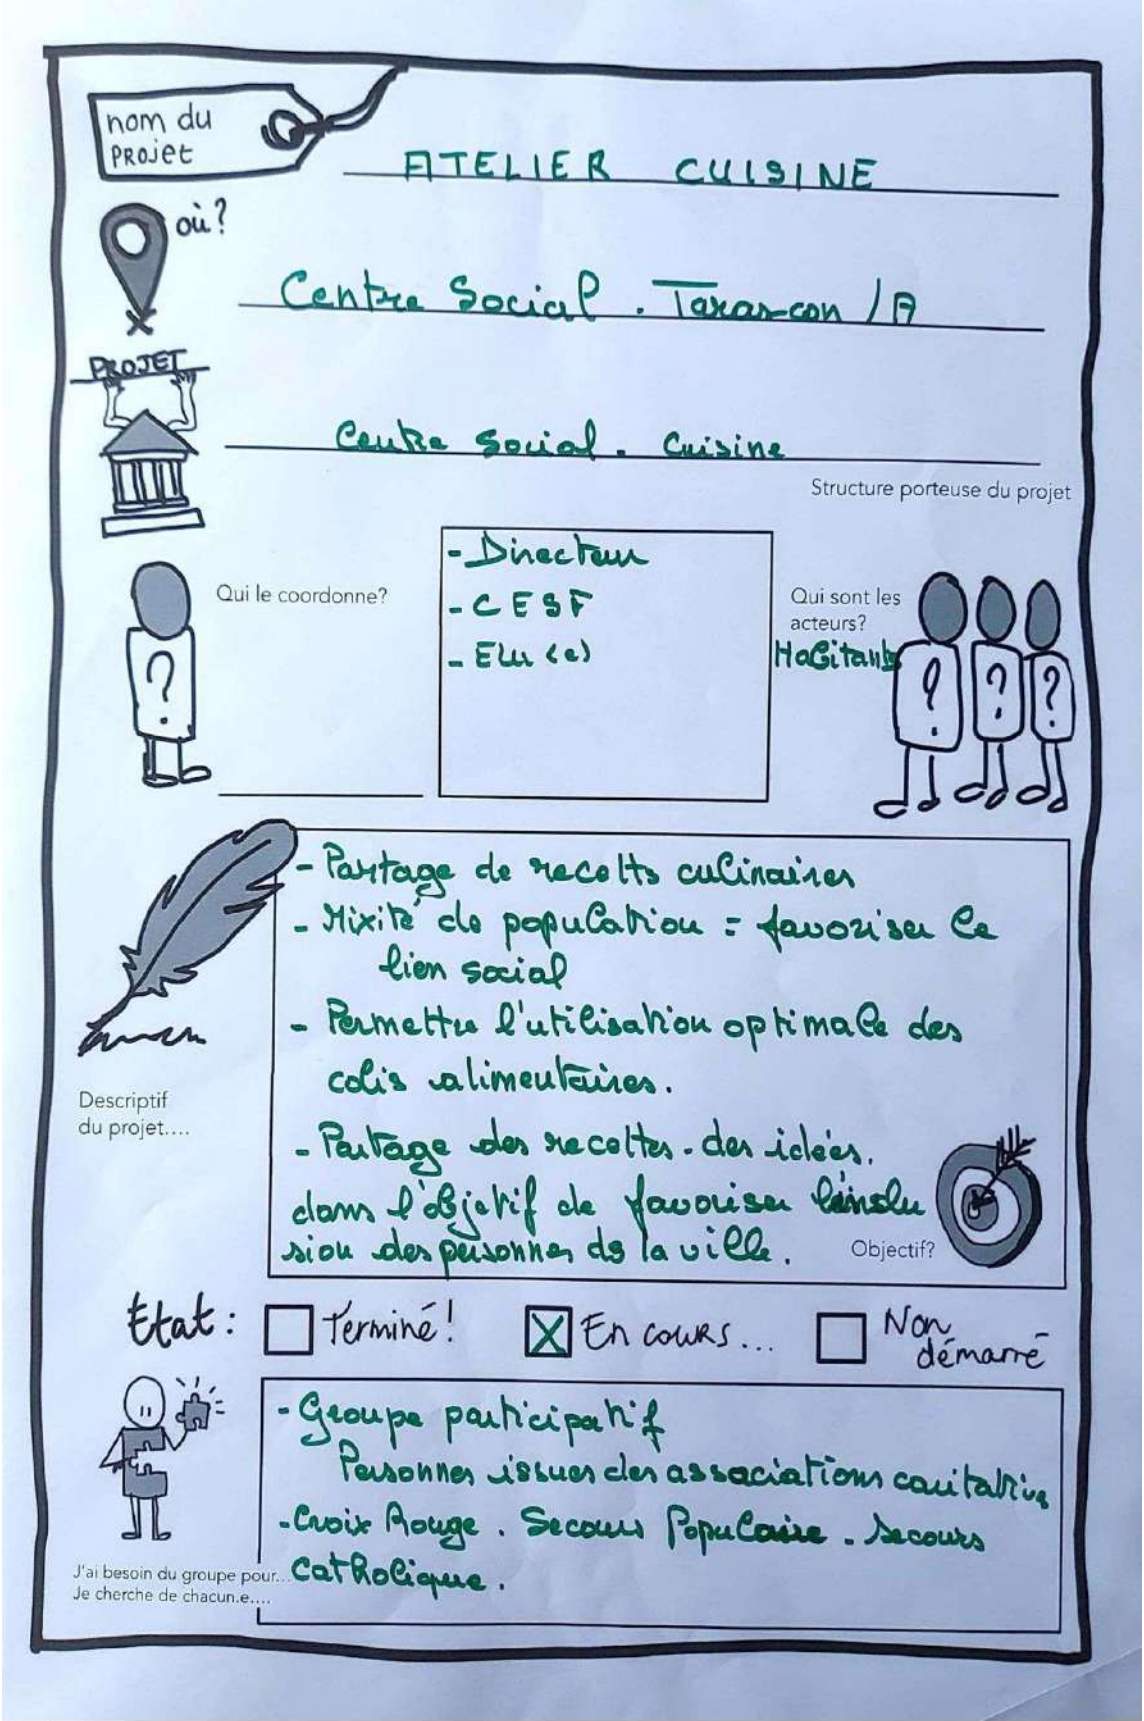 nom du
PROJET
ATELIER CUISINE
où?
Centre Social. Tarascon /A
PROJET
Centre Social. Cuisine
Structure porteuse du projet
Qui le coordonne?
- Directeur
- CESF
- Elu (e)
Qui sont les
acteurs?
Habitants
- Partage de recolts culinaires
- Mixité de population = favoriser le
lien social
- Permettre l'utilisation optimale des
colis alimentaires.
- Partage des recoltes. des idées.
dans l'objetif de favoriser l'inslu
sion des personnes de la ville.
Descriptif
du projet....
Objectif?
Etat :
Terminé!
X En cours...
Non
démarré
- Groupe participatif
Personnes issues des associations caritative
- Croix Rouge. Secours Populaire. Secours
Catholique.
J'ai besoin du groupe pour...
Je cherche de chacun.e....